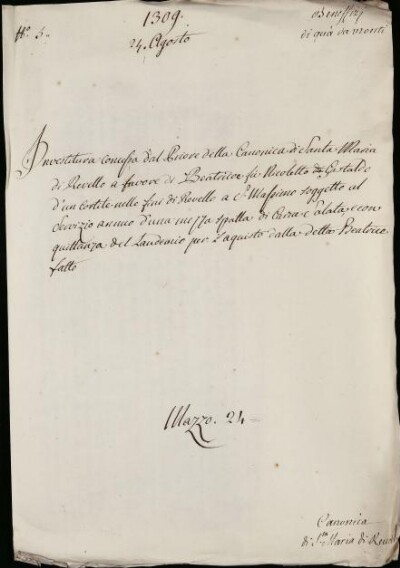 N.º 5.
1309.
24. Agosto
Beneffizj
di quà da monti
Investitura concessa dal Priore della Canonica di Santa Maria
di Revello a favore di Beatrice fu Nicoletto Gastaldo
d'un cortile nelle fini di Revello a S. Massimo soggetto al
Servizio annuo d'una mezza spalla di Carne Salata, e con
quittanza del Laudemio per l'aquisto dalla detta Beatrice
fatto
Mazzo. 24
Canonica
di S.ta Maria di Revello